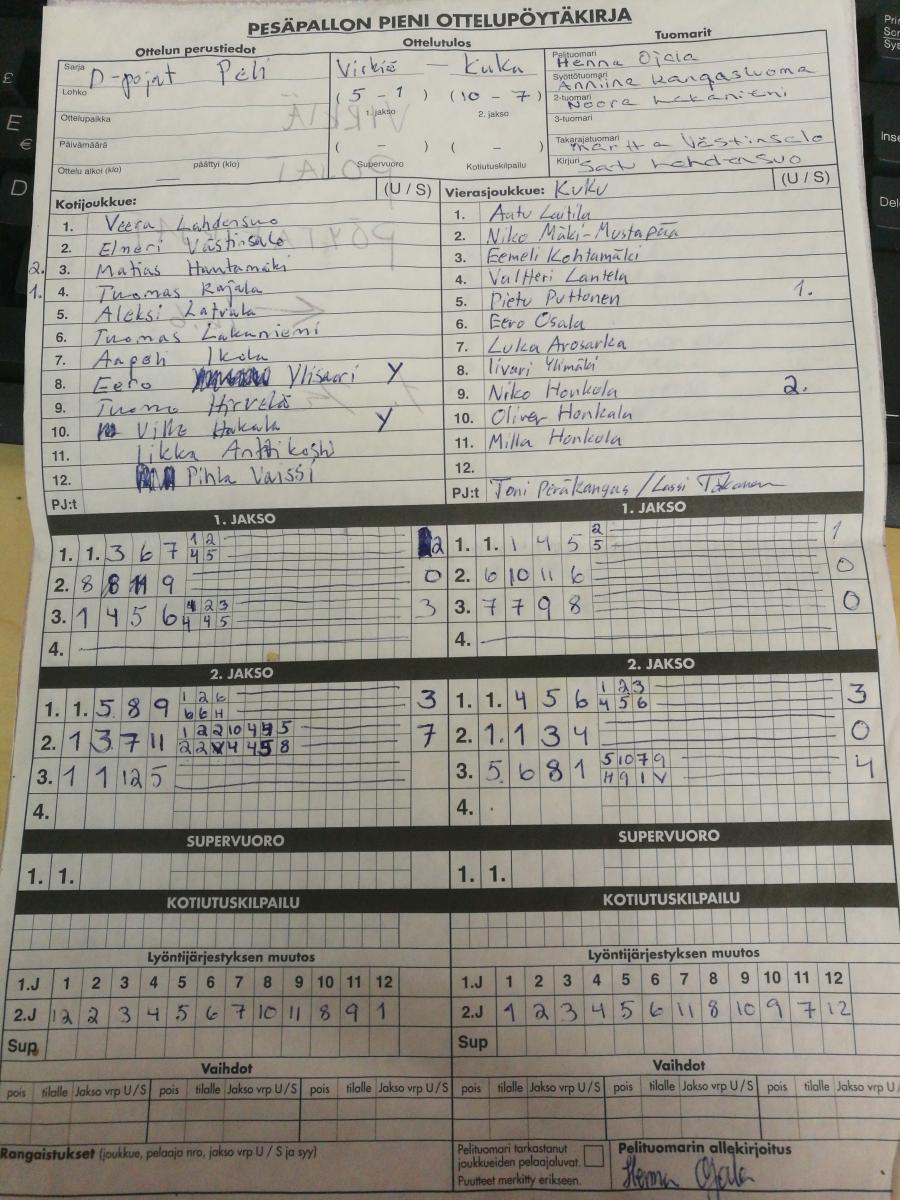 PESÄPALLON PIENI OTTELUPÖYTÄKIRJA
Ottelun perustiedot
Sarja D-pojat Peli
Lohko
Ottelupaikka
Päivämäärä
Ottelu alkoi (klo) päättyi (klo)
Ottelutulos
Virkiä – Kuku
( 5 – 1 ) ( 10 – 7 )
1. jakso 2. jakso
( – ) ( – )
Supervuoro Kotiutuskilpailu
Tuomarit
Pelituomari Henna Ojala
Syöttötuomari Anniina Kangasluoma
2-tuomari Noora
3-tuomari
Takarajatuomari Martta Västinsalo
Kirjuri Satu Lahdensuo
Kotijoukkue: (U / S)
1. Veera Lahdensuo
2. Elmeri Västinsalo
2. 3. Matias Hantamäki
1. 4. Tuomas Rajala
5. Aleksi Latvala
6. Tuomas Lakaniemi
7. Aapeli Ikola
8. Eero Ylisaari Y
9. Tuomo Hirvelä
10. Ville Hakala Y
11. Iikka Anttikoski
12. Pihla Vaissi
PJ:t
Vierasjoukkue: KuKu (U / S)
1. Aatu Laitila
2. Niko Mäki-Mustapää
3. Eemeli Kohtamäki
4. Valtteri Lantela
5. Pietu Puttonen 1.
6. Eero Osala
7. Luka Arosarka
8. Iivari Ylimäki
9. Niko Honkola 2.
10. Oliver Honkala
11. Milla Honkola
12.
PJ:t Toni Peräkangas / Lassi
1. JAKSO
1. 1. 3 6 7 1 2 2
4 5
2. 8 8 11 9 0
3. 1 4 5 6 4 2 3 3
4 4 5
4.
1. JAKSO
1. 1. 1 4 5 2 1
5
2. 6 10 11 6 0
3. 7 7 9 8 0
4.
2. JAKSO
1. 1. 5 8 9 1 2 6 3
6 6 H
2. 1 3 7 11 1 2 2 10 4 4 5 7
2 2 4 4 5 8
3. 1 1 12 5
4.
2. JAKSO
1. 1. 4 5 6 1 2 3 3
4 5 6
2. 1. 1 3 4 0
3. 5 6 8 1 5 10 7 9 4
H 9 1 V
4.
SUPERVUORO
1. 1.
SUPERVUORO
1. 1.
KOTIUTUSKILPAILU
KOTIUTUSKILPAILU
Lyöntijärjestyksen muutos
1.J 1 2 3 4 5 6 7 8 9 10 11 12
2.J 12 2 3 4 5 6 7 10 11 8 9 1
Sup
Lyöntijärjestyksen muutos
1.J 1 2 3 4 5 6 7 8 9 10 11 12
2.J 1 2 3 4 5 6 11 8 10 9 7 12
Sup
Vaihdot
pois tilalle Jakso vrp U / S pois tilalle Jakso vrp U / S pois tilalle Jakso vrp U / S
Vaihdot
pois tilalle Jakso vrp U / S pois tilalle Jakso vrp U / S pois tilalle Jakso vrp U /
Rangaistukset (joukkue, pelaaja nro, jakso vrp U / S ja syy)
Pelituomari tarkastanut
joukkueiden pelaajaluvat.
Puutteet merkitty erikseen.
Pelituomarin allekirjoitus
Henna Ojala